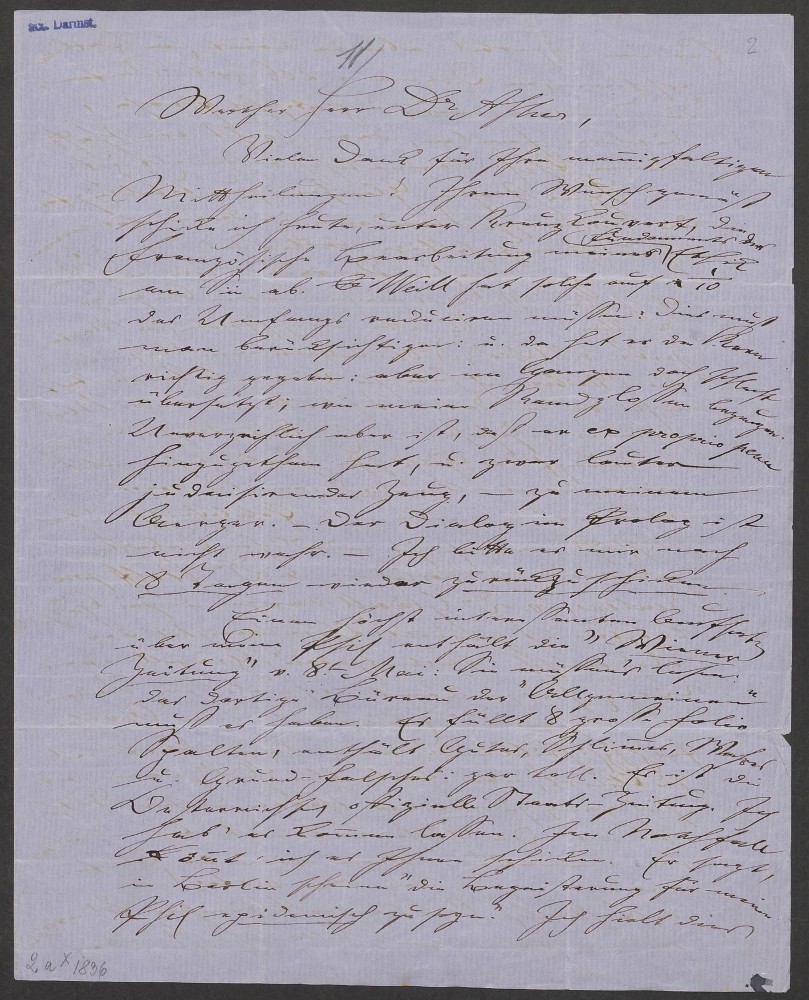 acc. Darmst.
11
2
Werther Herr Dr Asher,
Vielen Dank für Ihre mannigfaltigen
Mittheilungen! Ihrem Wunsch gemäß
schicke ich heute, unter Kreuz Couvert, die
französische Bearbeitung meines Fundaments der Ethik
an Sie ab. Weill hat solche auf 1/10
des Umfangs reduciren müssen: dies muß
man berücksichtigen: u. da hat er den Kern
richtig gegeben: aber im Ganzen doch schlecht
übersetzt; wie meine Randglossen bezeugen.
Unverzeihlich aber ist, daß er ex proprio penu
hinzugethan hat, u. zwar lauter
judaisirendes Zeug, – zu meinem
Aerger. – Der Dialog im Prolog ist
nicht wahr. – Ich bitte es mir nach
8 Tagen wieder zurückzuschicken.
Einen höchst interessanten Aufsatz
über meine Phil enthält die "Wiener
Zeitung" v. 8t Mai: Sie müssen's lesen.
Das dortige Büreau der "Allgemeinen"
muß es haben. Er füllt 8 große folio
Spalten, enthält Gutes, Schlimmes, Wahres
u. Grund-falsches: gar toll. Es ist die
Oesterreichsche, offizielle Staats-Zeitung. Ich
hab' es kommen lassen. Im Nothfall
könnt' ich es Ihnen schicken. Er sagt,
in Berlin scheine "die Begeisterung für meine
Phil epidemisch zu seyn." Ich hielt dies
2 a x 1836